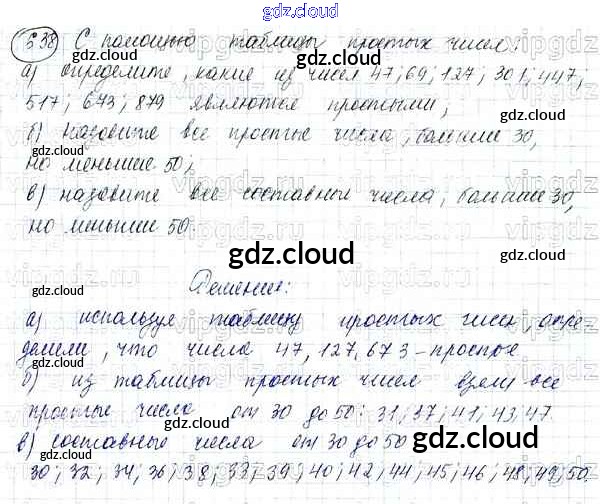 gdz.cloud
538 С помощью таблицы простых чисел:
а) определите, какие из чисел 47; 69; 127; 301; 447;
517; 673; 879 являются простыми;
б) назовите все простые числа, большие 30,
но меньшие 50;
в) назовите все составные числа, большие 30,
но меньшие 50.
gdz.cloud
Решение:
а) используя таблицу простых чисел, опре-
делили, что числа 47, 127, 673 – простые
б) из таблицы простых чисел взели все
простые числа от 30 до 50: 31; 37; 41; 43; 47.
в) составные числа от 30 до 50
30; 32; 34, 36; 38; 33; 39; 40; 42; 44; 45; 46; 48; 49; 50.
gdz.cloud